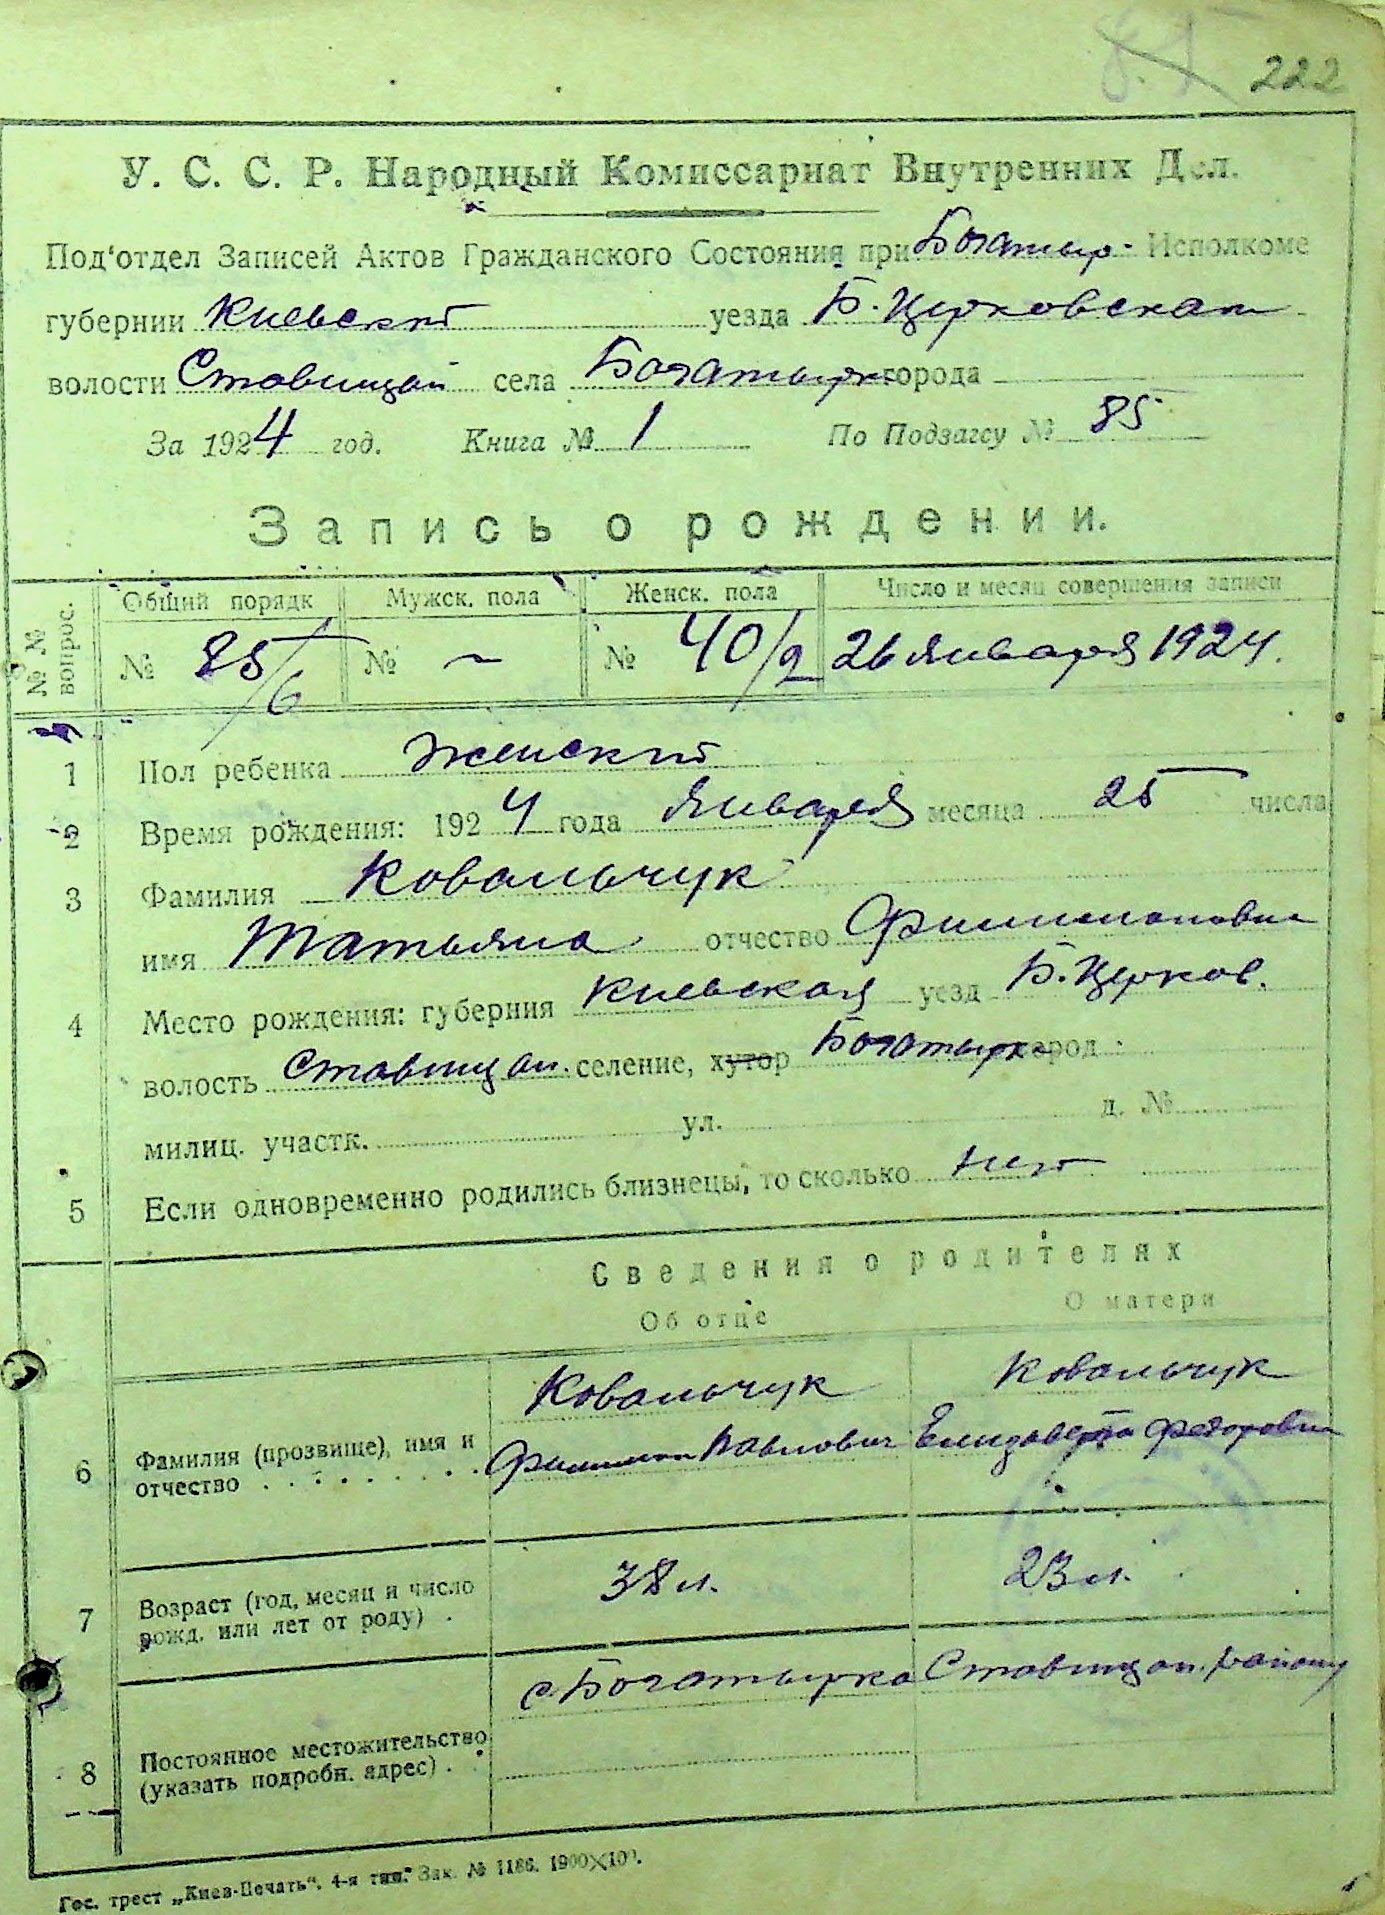 222
У. С. С. Р. Народный Комиссариат Внутренних Дел.
Под'отдел Записей Актов Гражданского Состояния при Богатыр- Исполкоме
губернии Киевской уезда Б. Церковская
волости Ставищан села Богатырка города
За 1924 год. Книга № 1 По Подзагсу № 85
Запись о рождении.
№№ вопрос. Общий порядк Мужск. пола Женск. пола Число и месяц совершения записи
№ 85/6 № ~ № 40/2 26 Января 1924.
1 Пол ребенка Женский
2 Время рождения: 1924 года Января месяца 25 числа
3 Фамилия Ковальчук
имя Татьяна отчество Филимоновна
4 Место рождения: губерния Киевская уезд Б. Церков.
волость Ставищан. селение, хутор Богатырка город
милиц. участк. ул. д. №
5 Если одновременно родились близнецы, то сколько нет
Сведения о родителях
Об отце О матери
Ковальчук Ковальчук
6 Фамилия (прозвище), имя и отчество Филимон Павлович Елизавета Федоровна
7 Возраст (год, месяц и число рожд. или лет от роду) 38 л. 23 л.
с. Богатырка Ставищан. району
8 Постоянное местожительство (указать подробн. адрес)
Гос. трест „Киев-Печать". 4-я тип. Зак. № 1186. 1900×100.